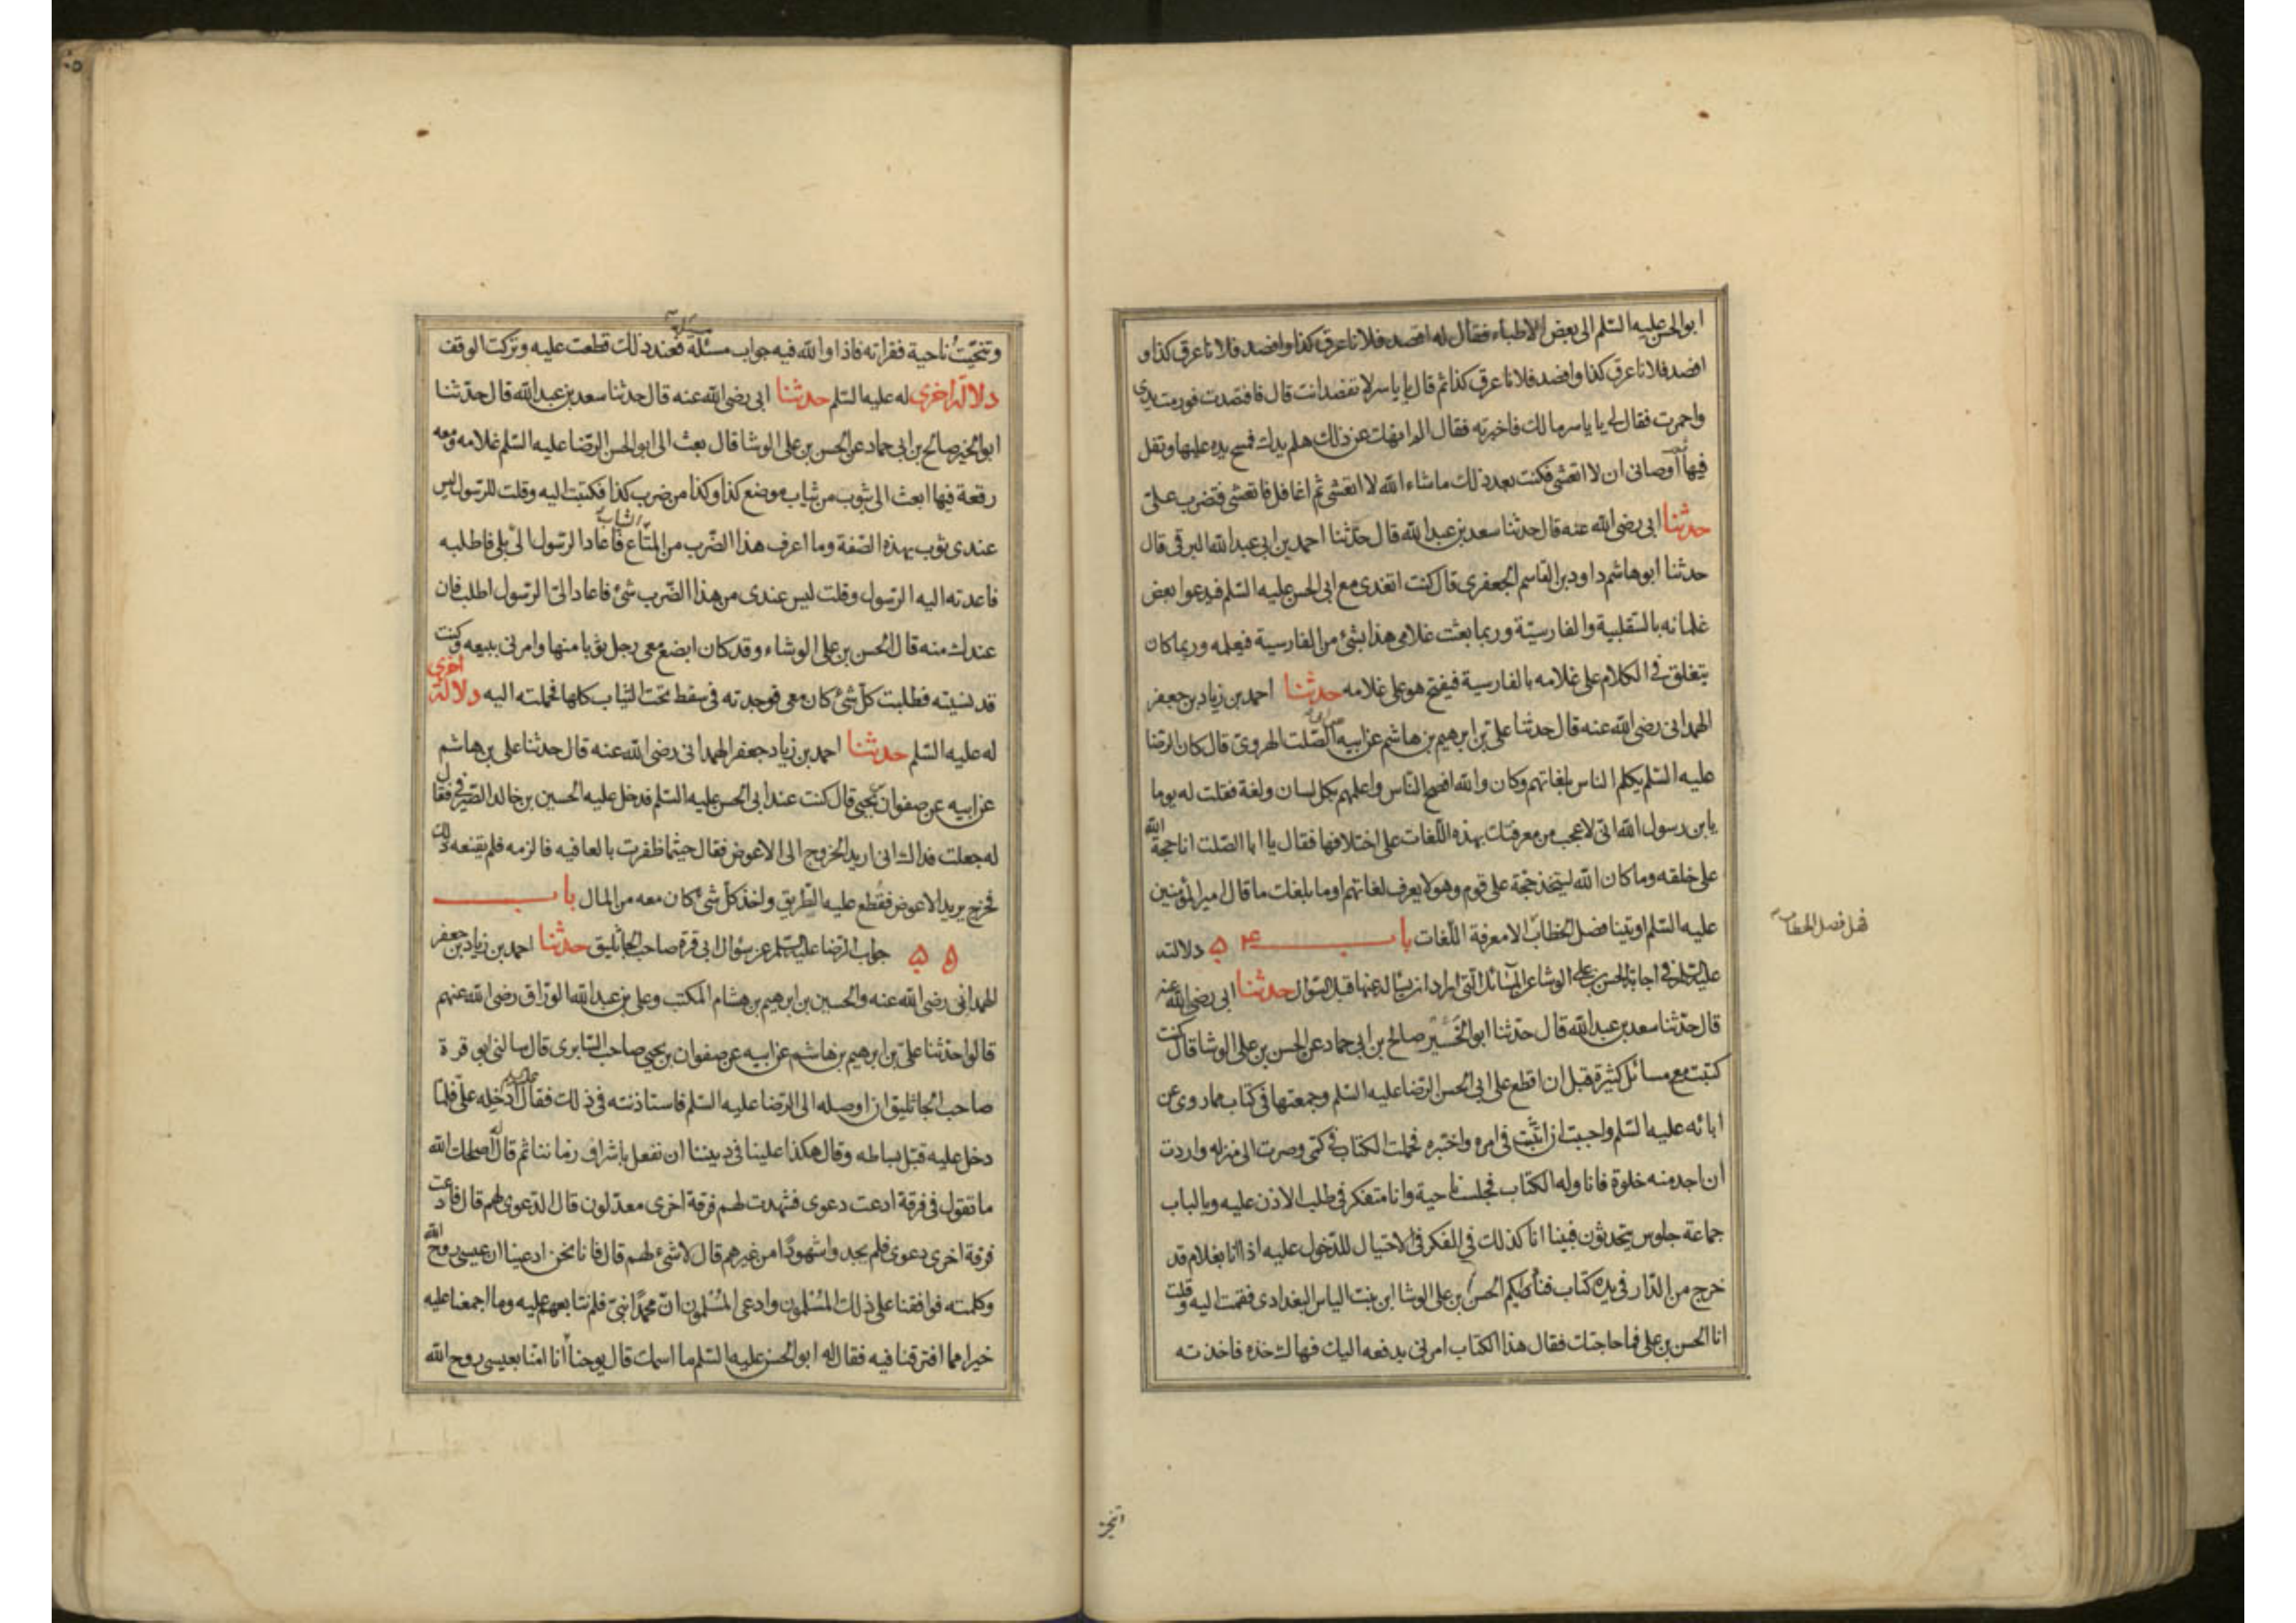 ابوالحسن عليه السلم الى بعض الاطباء فقال له افصد فلانا عرق كذا وافصد فلانا عرق كذا و
افصد فلانا عرق كذا وافصد فلانا عرق كذا ثم قال يا ياسر لا تفصد انت قال فافتصدت فورمت يدى
واحمرت فقال لى يا ياسر مالك فاخبرته فقال الم انهك عن ذلك هلم يدك فمسح يده عليها وتفل
فيها ثم اوصانى ان لا اتعشى فكنت بعد ذلك ماشاء الله لا اتعشى ثم اغافل فاتعشى فتضرب على
حدثنا ابى رضى الله عنه قال حدثنا سعد بن عبد الله قال حدثنا احمد بن ابى عبد الله البرقى قال
حدثنا ابوهاشم داود بن القاسم الجعفرى قال كنت اتغدى مع ابى الحسن عليه السلم فيدعوا بعض
غلمانه بالسقلبية والفارسية وربما بعثت غلامى هذا بشئ من الفارسية فيعلمه وربما كان
يتغلق فى الكلام على غلامه بالفارسية فيفتح هو على غلامه حدثنا احمد بن زياد بن جعفر
الهمدانى رضى الله عنه قال حدثنا على بن ابرهيم بن هاشم عن ابيه الصلت الهروى قال كان الرضا
عليه السلم يكلم الناس بلغاتهم وكان والله افصح الناس واعلمهم بكل لسان ولغة فقلت له يوما
يابن رسول الله انى لاعجب من معرفتك بهذه اللغات على اختلافها فقال يا ابا الصلت انا حجة الله
على خلقه وما كان الله ليتخذ حجة على قوم وهو لا يعرف لغاتهم اوما بلغك ما قال امير المؤمنين
عليه السلم اوتينا فضل الخطاب الا معرفة اللغات باب ۵۴ دلالته
فهل فصل الخطاب
عليه السلم فى اجابة الحسن بن على الوشا عن المسائل التى اراد ان يسأله عنها قبل السؤال حدثنا ابى رضى الله عنه
قال حدثنا سعد بن عبد الله قال حدثنا ابو الخير صالح بن ابى حماد عن الحسن بن على الوشا قال كنت
كتبت مع مسائل كثيرة قبل ان اقطع على ابى الحسن الرضا عليه السلم وجمعتها فى كتاب مما روى عن
ابائه عليه السلم واحببت ان اثبت فى امره واختبره فحملت الكتاب فى كمى وصرت الى منزله واردت
ان اجد منه خلوة فاناوله الكتاب فجلست ناحية وانا متفكر فى طلب الاذن عليه وبالباب
جماعة جلوس يتحدثون فبينا انا كذلك فى الفكر فى الاحتيال للدخول عليه اذا انا بغلام قد
خرج من الدار فى يده كتاب فنادى ايكم الحسن بن على الوشا ابن بنت الياس البغدادى فقمت اليه وقلت
انا الحسن بن على فما حاجتك فقال هذا الكتاب امرنى بدفعه اليك فهاك خذه فاخذته
وتنحيت ناحية فقرأته فاذا والله فيه جواب مسئلة فعند ذلك قطعت عليه وتركت الوقف
دلالة اخرى له عليه السلم حدثنا ابى رضى الله عنه قال حدثنا سعد بن عبد الله قال حدثنا
ابو الخير صالح بن ابى حماد عن الحسن بن على الوشا قال بعث الى ابو الحسن الرضا عليه السلم غلامه ومعه
رقعة فيها ابعث الى بثوب من ثياب موضع كذا وكذا من ضرب كذا فكتبت اليه وقلت للرسول ليس
عندى ثوب بهذه الصفة وما اعرف هذا الضرب من المتاع فاعاد الرسول الى بلى فاطلبه
فاعدته اليه الرسول وقلت ليس عندى من هذا الضرب شئ فاعاد الى الرسول اطلب فان
عندك منه قال الحسن بن على الوشاء وقد كان ابضع معى رجل ثوبا منها وامرنى ببيعه وكنت
قد نسيته فطلبت كل شئ كان معى فوجدته فى سفط تحت الثياب كلها فحملته اليه دلالة اخرى
له عليه السلم حدثنا احمد بن زياد جعفر الهمدانى رضى الله عنه قال حدثنا على بن هاشم
عن ابيه عن صفوان بن يحيى قال كنت عند ابى الحسن عليه السلم فدخل عليه الحسين بن خالد الصيرفى فقال
له جعلت فداك انى اريد الخروج الى الاعوض فقال حيثما ظفرت بالعافيه فالزمه فلم يقنعه ذلك
فخرج يريد الاعوض فقطع عليه الطريق واخذ كل شئ كان معه من المال باب
۵۵ جواب الرضا عليه السلم عن سؤال ابى قرة صاحب الجاثليق حدثنا احمد بن زياد بن جعفر
الهمدانى رضى الله عنه والحسين بن ابرهيم بن هشام المكتب وعلى بن عبد الله الوراق رضى الله عنهم
قالوا حدثنا على بن ابرهيم بن هاشم عن ابيه عن صفوان بن يحيى صاحب السابرى قال سالنى ابو قرة
صاحب الجاثليق ان اوصله الى الرضا عليه السلم فاستاذنته فى ذلك فقال ادخله على فلما
دخل عليه قبل بساطه وقال هكذا علينا فى ديننا ان نفعل باشراف زماننا ثم قال له اصلحك الله
ما تقول فى فرقة ادعت دعوى فشهدت لهم فرقة اخرى معدلون قال الدعوى لهم قال فادعت
فرقة اخرى دعوى فلم يجدوا شهودا من غيرهم قال لا شئ لهم قال فانا نحن ادعينا ان عيسى روح الله
وكلمته فوافقنا على ذلك المسلمون وادعى المسلمون ان محمدا نبى فلم نتابعهم عليه وما اجمعنا عليه
خير مما افترقنا فيه فقال له ابو الحسن عليه السلم ما اسمك قال يوحنا انا امنا بعيسى روح الله